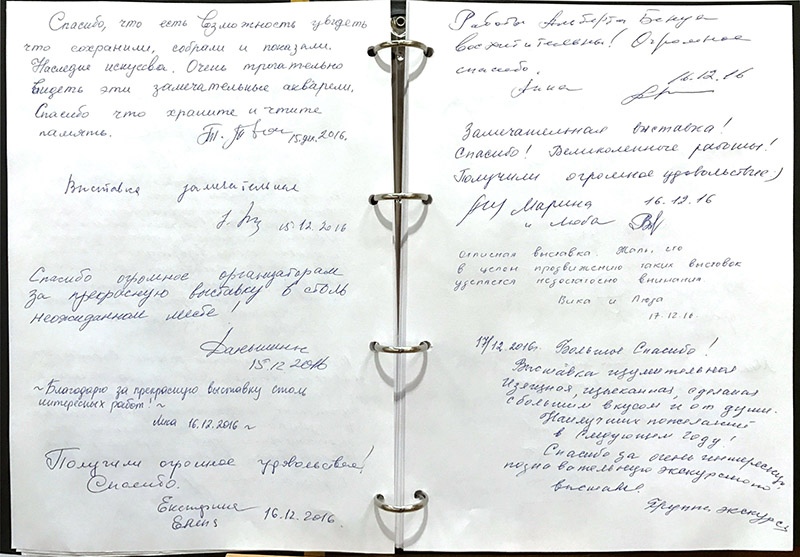 Спасибо, что есть возможность увидеть
что сохранили, собрали и показали.
Наследие искусва. Очень трогательно
видеть эти замечательные акварели.
Спасибо что храните и чтите
память.
15 дек. 2016.
Выставка замечательная
15.12.2016
Спасибо огромное организаторам
за прекрасную выставку в столь
неожиданном месте!
15.12.2016
~Благодарю за прекрасную выставку столь
интересных работ!~
16.12.2016 ~
Получили огромное удовольствие!
Спасибо.
Екатерина
Елена 16.12.2016.
Работы Альберта Бенуа
восхитительны! Огромное
спасибо.
Анна 16.12.16
Замечательная выставка!
Спасибо! Великолепные работы!
Получили огромное удовольствие)
Марина 16.12.16
и Люба
Отличная выставка. Жаль, что
в целом продвижению таких выставок
уделяется недостаточно внимания
Вика и Лёза
17.12.16
17/12.2016г. Большое Спасибо!
Выставка изумительная
Изящная, изысканная, сделана
с большим вкусом и от души.
Наилучших пожеланий
в Следующем Году!
Спасибо за очень интересную
познавательную экскурсию
выставке.
Группа экскурс